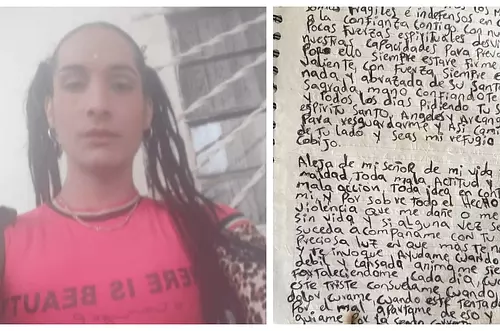 ERE IS BEAUT
somos frágiles e indefensos en
a la confianza contigo con nu
Pocas fuerzas espirituales desu
nuestras capacidades Para Prev
Por ello siempre estare firme
valiente con fuerza siempre
nada y abrazada de su Santa
Sagrada mano confiandote
todos los dias Pidiendo Tu
espiritu Santo, Angeles y Arcang
Para resguardarme y Asi cam
de Tu lado y seas mi refugio
cobijo.
Aleja de mi SEÑOR de mi vida
maldad, Toda mala Actitud
mala accion, Toda idea en con
mi y Por sobre todo el Hecho
violencia que me dañe o me
sin vida y si alguna vez se
suceda acompañame con T
Preciosa luz en que mas Te n
y Te invoque Ayudame cuando
debil y cansada animame si
fortaleciendome cada dia, cu
este triste consuelame cuando
dolor curame, cuando este Tentad
Por el mal apartame de eso y
guiame Por la senda